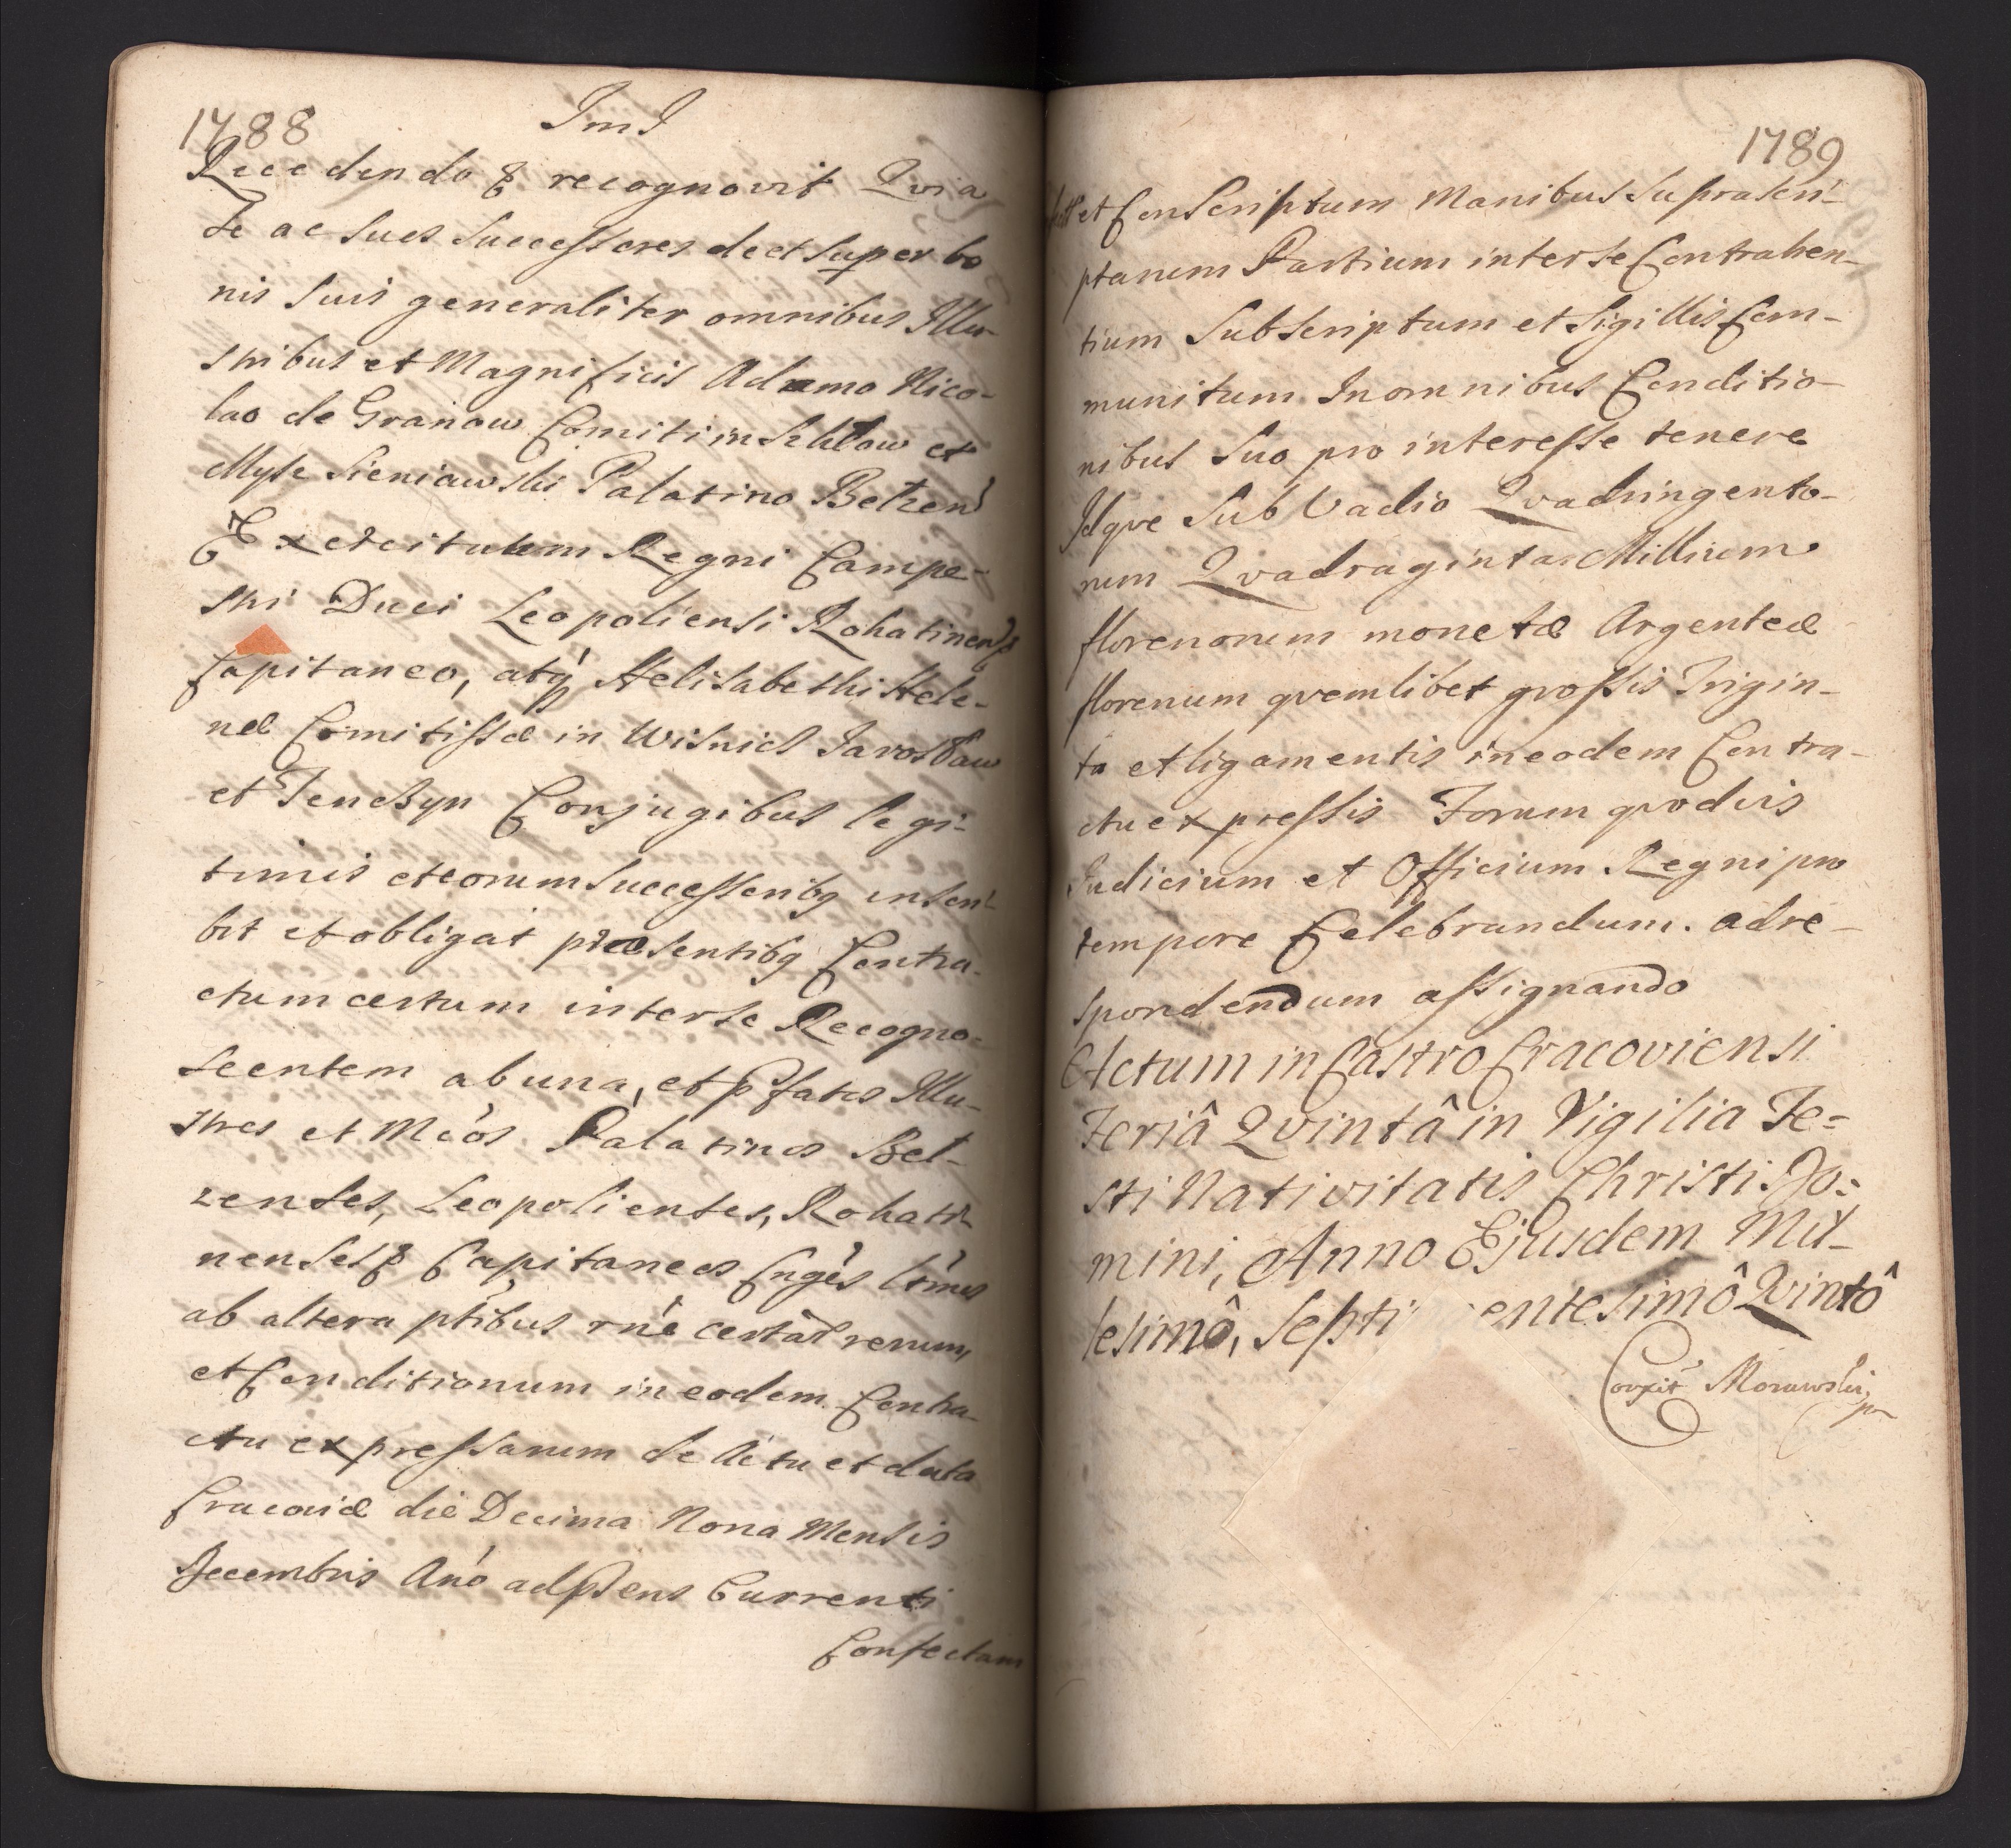 1788
ImJ
Recedendo & recognovit Qvia
Se ac Suos Successores de et Super bo
nis Suis generaliter omnibus Illu-
stribus et Magnificis Adamo Nico-
lao de Granow Comiti in Szkłow et
Mysz Sieniawski Palatino Bełzen
Exercituum Regni Campe-
stri Duci Leopoliensi Rohatinens
Capitaneo, atq Helisabethi Hele-
næ Comitissæ in Wisnicz Jarosław
et Tenczyn Conjugibus legi-
timis et eorum Successoribq inscri-
bit et obligat præsentibq Contra-
ctum certum inter se Recogno-
scentem ab una, et pfatos Illu-
stres et Mcos Palatinos Beł-
zenses, Leopolienses, Rohati-
nenses & Capitaneos Cnges ltimos
ab altera ptibus rne certar rerum,
et Conditionum in eodem Contra-
ctu expressarum de Actu et data
Cracoviæ die Decima Nona Mensis
Decembris Ano ad psens Currenti
Confectum
1789
et Conscriptum Manibus Suprascri-
ptarum Partium inter se Contrahen-
tium Subscriptum et Sigillis Com-
munitum In omnibus Conditio-
nibus Suo pro interesse tenere
Idqve Sub Vadio Qvadringento-
rum Qvadraginta Millium
florenorum monetæ Argenteæ
florenum qvemlibet grossis Trigin-
ta et ligamentis in eodem Contra-
ctu expressis Forum qvodvis
Judicium et Officium Regni pro
tempore Celebrandum. ad re-
spondendum assignando
Actum in Castro Cracoviensi
Feriâ Qvintâ in Vigilia Fe=
sti Nativitatis Christi Do:
mini, Anno Ejusdem Mil-
lesimô, Septi entesimô Qvintô
Corxit Morawski